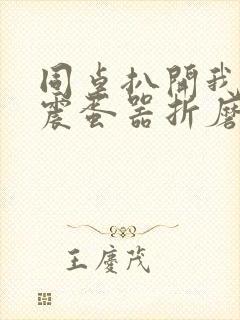 同桌扒開我
震蛋器折磨
王慶茂